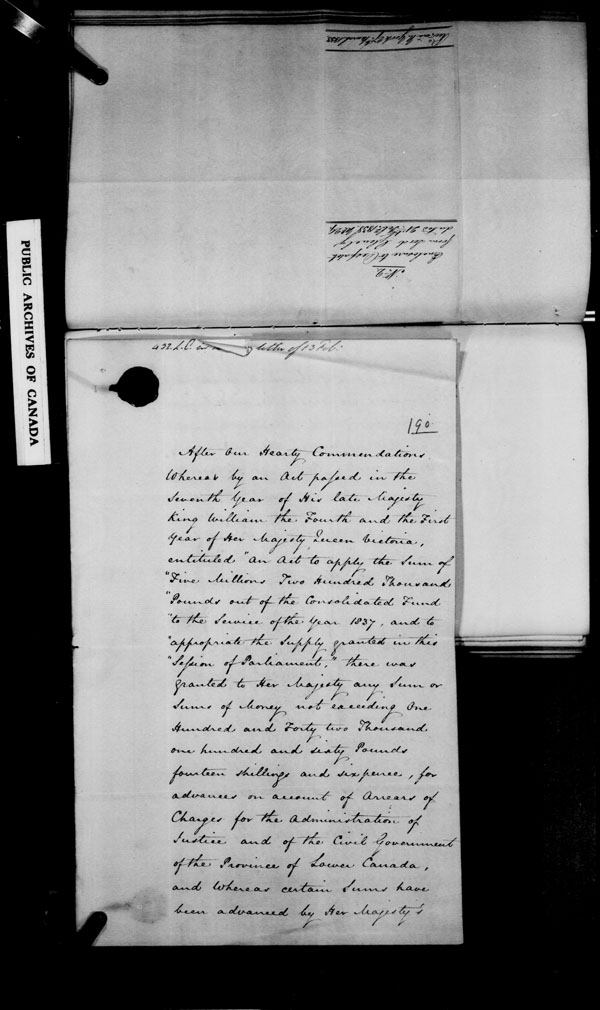 PUBLIC ARCHIVES OF CANADA
No. 2
Enclosure to Despatch
from Lord Glenelg
letter of 13 Feb.
190
After Our Hearty Commendations
Whereas by an Act passed in the
Seventh Year of His late Majesty
King William the Fourth and the First
Year of Her Majesty Queen Victoria,
entituled "An Act to apply the Sum of
"Five Millions Two Hundred Thousand
"Pounds out of the Consolidated Fund
"to the Service of the Year 1837, and to
"appropriate the Supply granted in this
"Session of Parliament," there was
granted to Her Majesty any Sum or
Sums of Money not exceeding One
Hundred and Forty two Thousand
one hundred and sixty Pounds
fourteen shillings and sixpence, for
advances on account of Arrears of
Charges for the Administration of
Justice and of the Civil Government
of the Province of Lower Canada,
and Whereas certain Sums have
been advanced by Her Majesty's